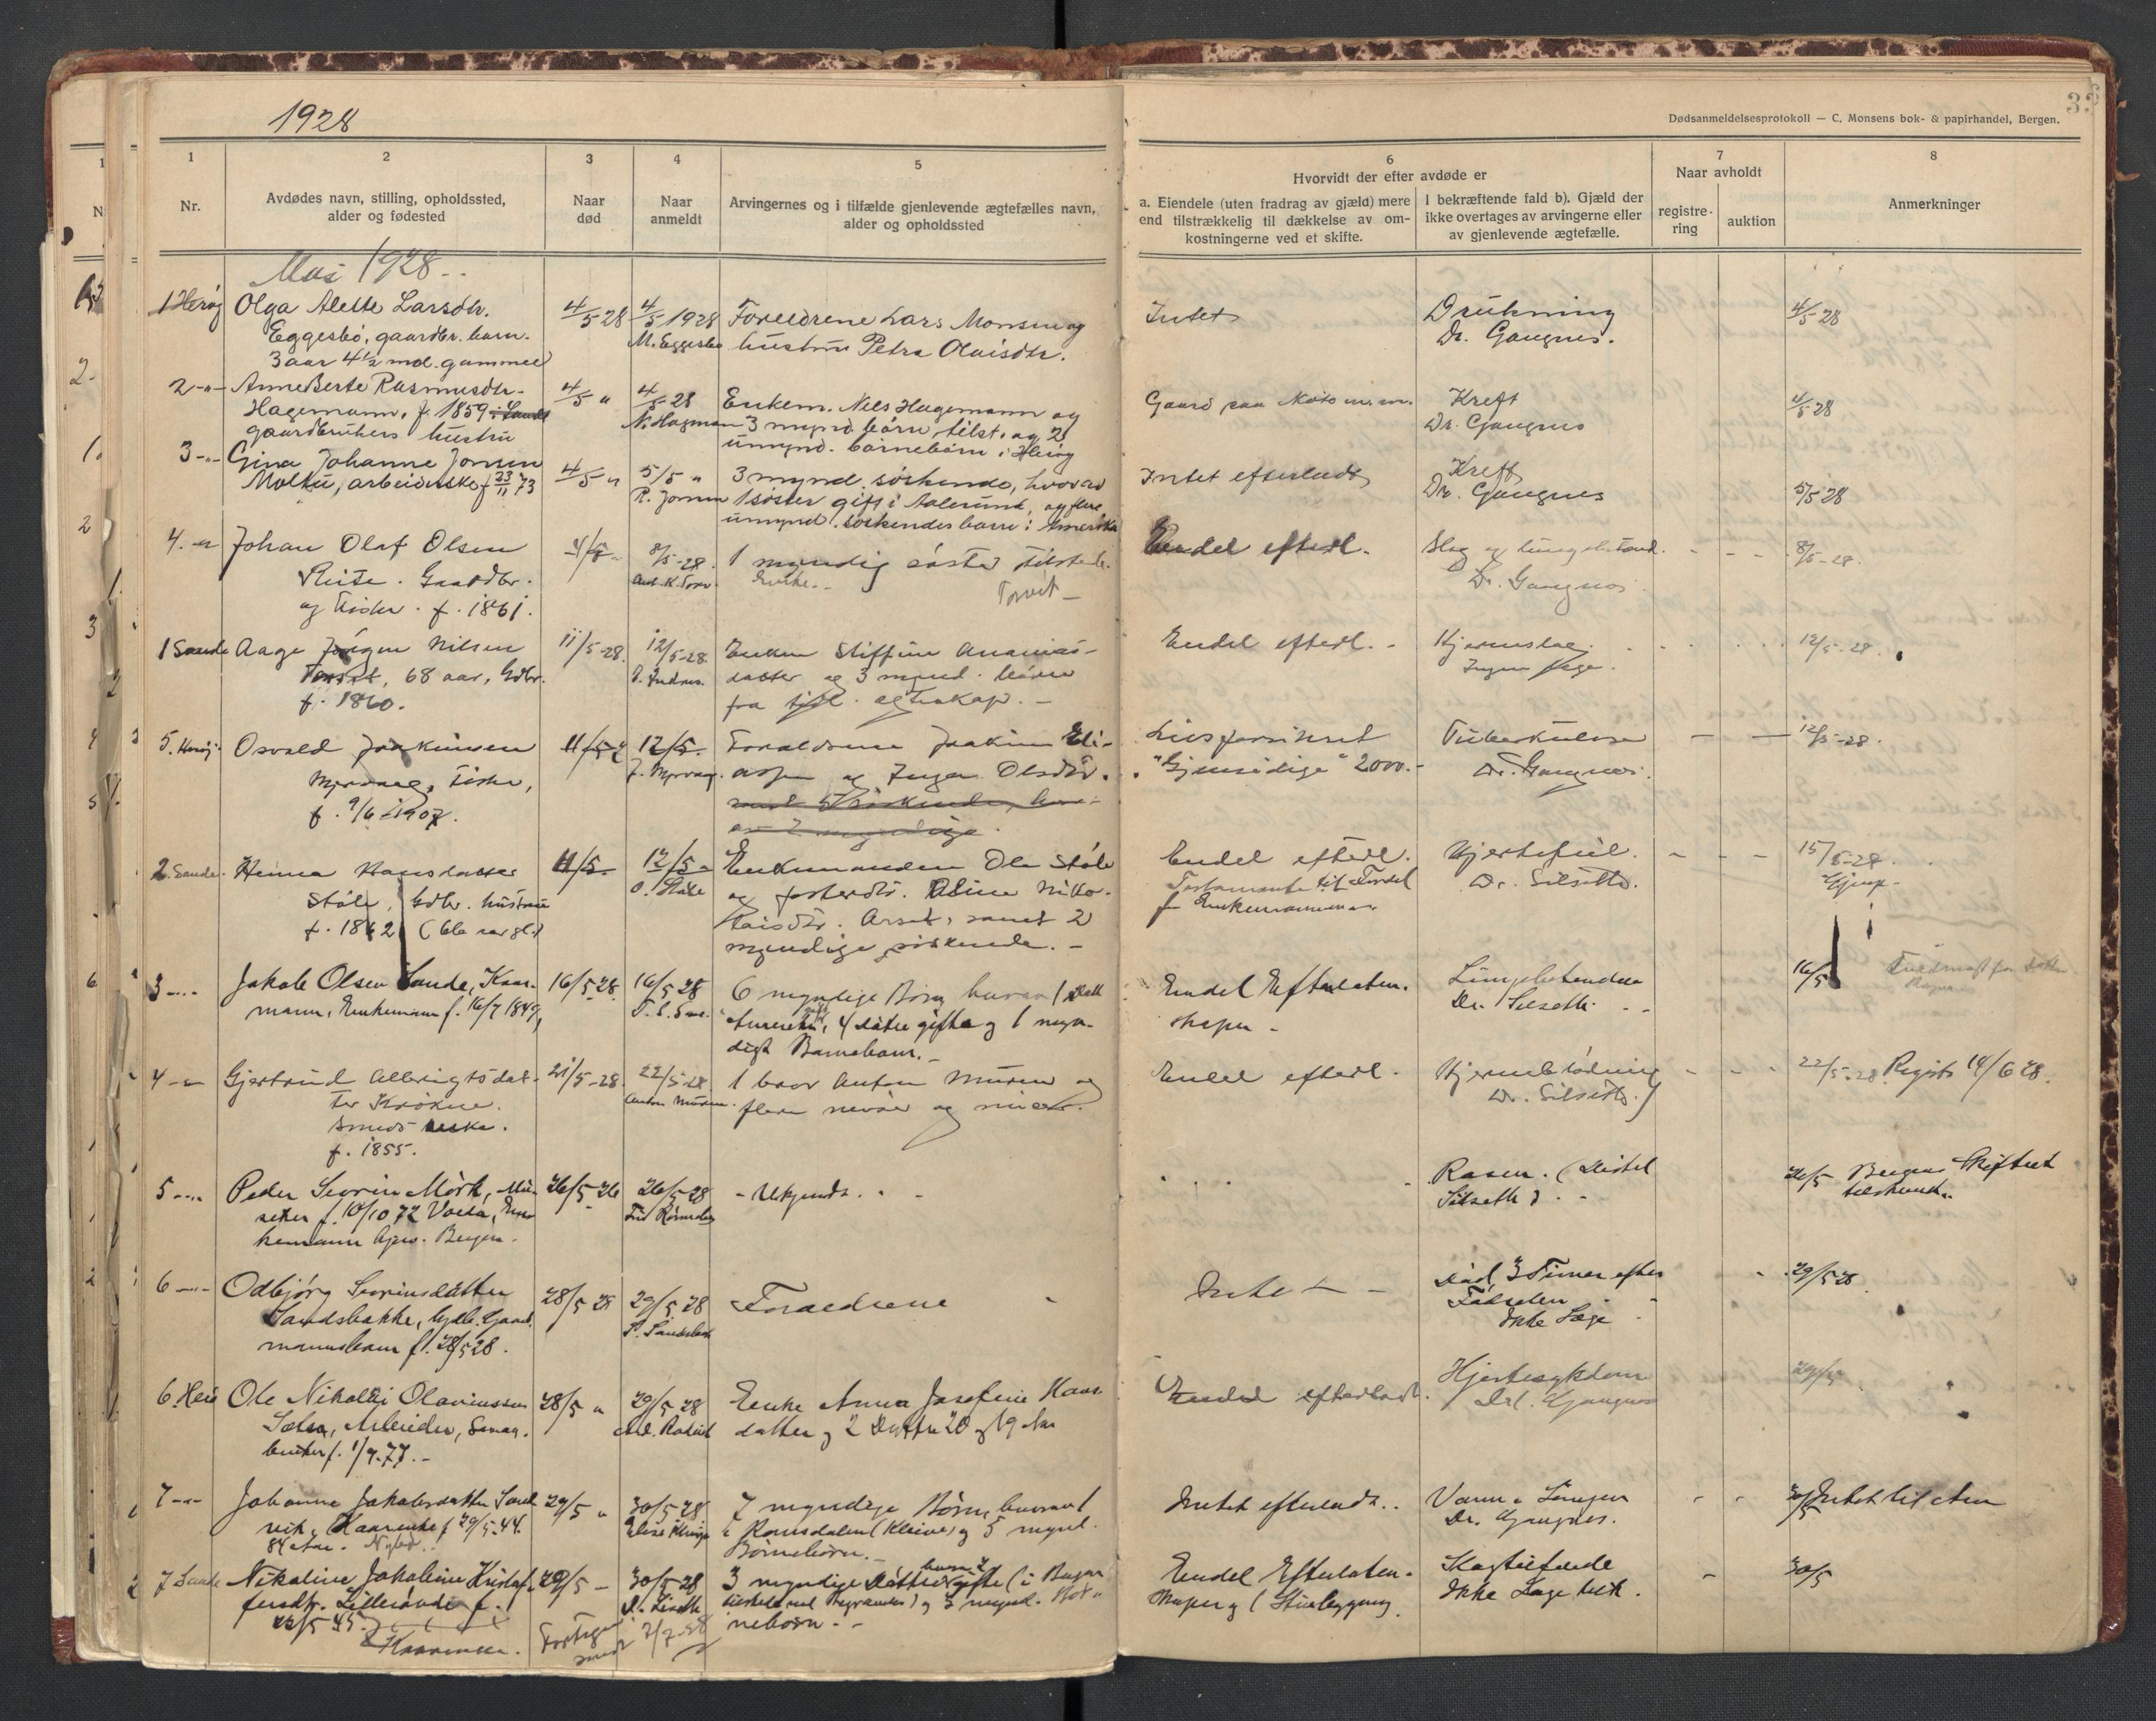 1928
33
Dødsanmeldelsesprotokoll — C. Monsens bok- & papirhandel, Bergen.
1
2
3
4
5
6
7
8
Nr.
Avdødes navn, stilling, opholdssted,
alder og fødested
Naar
død
Naar
anmeldt
Arvingernes og i tilfælde gjenlevende ægtefælles navn,
alder og opholdssted
Hvorvidt der efter avdøde er
a. Eiendele (uten fradrag av gjæld) mere
end tilstrækkelig til dækkelse av om-
kostningerne ved et skifte.
I bekræftende fald b). Gjæld der
ikke overtages av arvingerne eller
av gjenlevende ægtefælle.
Naar avholdt
registre-
ring
auktion
Anmerkninger
Mai 1928
1 Herøy
Olga Alette Larsdtr.
Eggesbø, gaardbr. barn.
3 aar 4½ md. gammel
4/5 28
4/5 1928
M. Eggesbø
Forældrene Lars Monsen og
hustru Petra Olaisdtr.
Intet
Drukning
Dr. Gangnes.
4/5 28
2 -"-
Anne Berte Rasmusdtr.
Hagemann, f. 1859
gaardbrukers hustru
4/5 "
4/5 28
N. Hagemann
Enkem. Nils Hagemann og
3 mynd. børn tilst. og 2
umynd. børnebørn i Herøy
Gaard paa
Kreft
Dr. Gangnes
4/5 28
3 -"-
Gina Johanne Jonsen
Moltu, arbeiderske f 23/11 73
4/5 "
5/5 "
R. Jonsen
3 mynd. søskende, hvorav
1 søster gift i Aalesund, og flere
umynd. søskendebarn i Amerika
Intet efterladt
Kreft
Dr. Gangnes
5/5 28
4. -"-
Johan Olaf Olsen
Gaardbr.
og fisker. f. 1861.
4/5 -
8/5-28.
1 myndig søster tilstede.
Enke.
Endel efterl.
Slag og lungebetænd.
Dr. Gangnes
8/5-28.
1 Sande
Aage Jørgen Nilsen
68 aar, Gdbr.
f. 1860.
11/5-28.
12/5-28.
Enken Stiffine Ananias-
datter og 3 mynd. børn
fra tidl. egteskap. -
Endel efterl. -
Hjerneslag.
Ingen læge.
12/5-28.
5. Herøy
Osvald Joakimsen
Myrvaag, fisker,
f. 9/6-1907.
11/5-28
12/5-
J. Myrvaag.
Forældrene Joakim Eli-
assen og Inga Olsdtr.
Livsforsikret
"Gjensidige" 2000.-
Tuberkulose
Dr. Gangnes.
12/5-28.
2. Sande
Hansdatter
Støle, Gdbr. hustru
f. 1862 (66 aar gl.)
11/5-
12/5-
O. Støle
Enkemanden Ole Støle
og fosterdtr. Aline Niko-
laisdtr. Årset, samt 2
myndige søskende. -
Endel efterl.
Testamente til Fordel
for Enkemannen
Hjertefeil.
Dr. Silseth.
15/5-28.
3 -"-
Jakob Olsen Sande, Kaar-
mann, Enkemann f. 16/7 1849,
16/5 28
16/5 28
6 myndige Børn hvorav 1 Datt
Amerika, 4 døtre gifte og 1 myn-
digt Barnebarn. -
Endel Efterladen-
skaper -
Lungebetændelse
Dr. Silseth.
16/5
4 -"-
Gjertrud Albrigtsdat-
ter Krøkne.
Smeds enke.
f. 1855.
21/5-28.
22/5-28
Anton Muren.
1 bror Anton Muren og
flere nevøer og niecer.
Endel efterl.
Hjerneblødning
Dr. Silseth.
22/5-28 Registr 14/6 28.
5 -"-
Peder Severin Mørk, Mu-
seker f. 10/10 72 Volda, En-
kemann Bergen.
26/5 26
26/5 28
- Ukjendt. -
Rosen. (Distl
Silseth)
26/5 Bergens Skifteret
tilskrevet
6 -"-
Odbjørg Severinsdatter
Sandsbakke, Gaard-
mannsbarn f. 28/5 28.
28/5 28
29/5 28
Forældrene
Intet -
Død 3 Timer efter
Fødselen
Ikke Læge
29/5 28
6 Herø
Ole Nikolai Olaviussen
Arbeider, Smaa-
bruker f. 1/9-77. -
28/5 "
29/5 28
Enke Anna Josefine Hans-
datter og 2 Døtre 20 og 19 Aar
Endel efterladt.
Hjertesykdom
Dr. Gangnes
29/5
7 -"-
Johanne Jakobsdatter Sand-
vik, Kaarenke f 29/5-44.
84 Aar.
29/5 "
30/5 28
7 myndige Børn, hvorav 1
i Romsdalen (Kleive) og 5 mynd.
Børnebørn. -
Intet efterladt. -
Vann i Lungen
Dr. Gangnes.
30/5 Intet til Aren
7 Sande
Nikoline Jakobine Kristof-
fersdtr. f.
22/5 45.
Kaarenke.
29/5 -
30/5 28
3 myndige Døtre gifte (i Bergen
og 3 mynd. Bør-
nebørn. -
Endel Efterladen-
skaper
Slagtilfælde
Ikke Læge
30/5